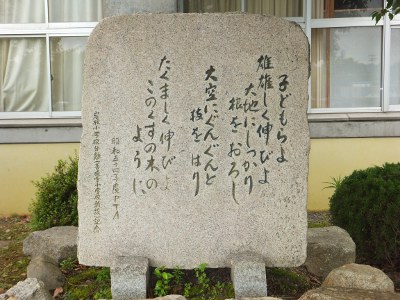 子どもらよ
雄雄しく伸びよ
大地にしっかり
根をおろし
大空にぐんぐんと
枝をはり
たくましく伸びよ
このくすの木の
ように